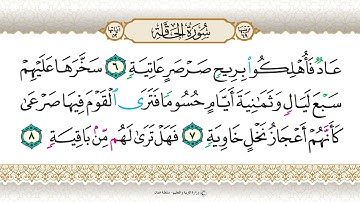 سُورَةُ الحَاقَّةِ
عَادٌ فَأُهْلِكُوا۟ بِرِيحٍ صَرْصَرٍ عَاتِيَةٍ ٦ سَخَّرَهَا عَلَيْهِمْ
سَبْعَ لَيَالٍ وَثَمَانِيَةَ أَيَّامٍ حُسُومًا فَتَرَى الْقَوْمَ فِيهَا صَرْعَىٰ
كَأَنَّهُمْ أَعْجَازُ نَخْلٍ خَاوِيَةٍ ٧ فَهَلْ تَرَىٰ لَهُم مِّنۢ بَاقِيَةٍ ٨